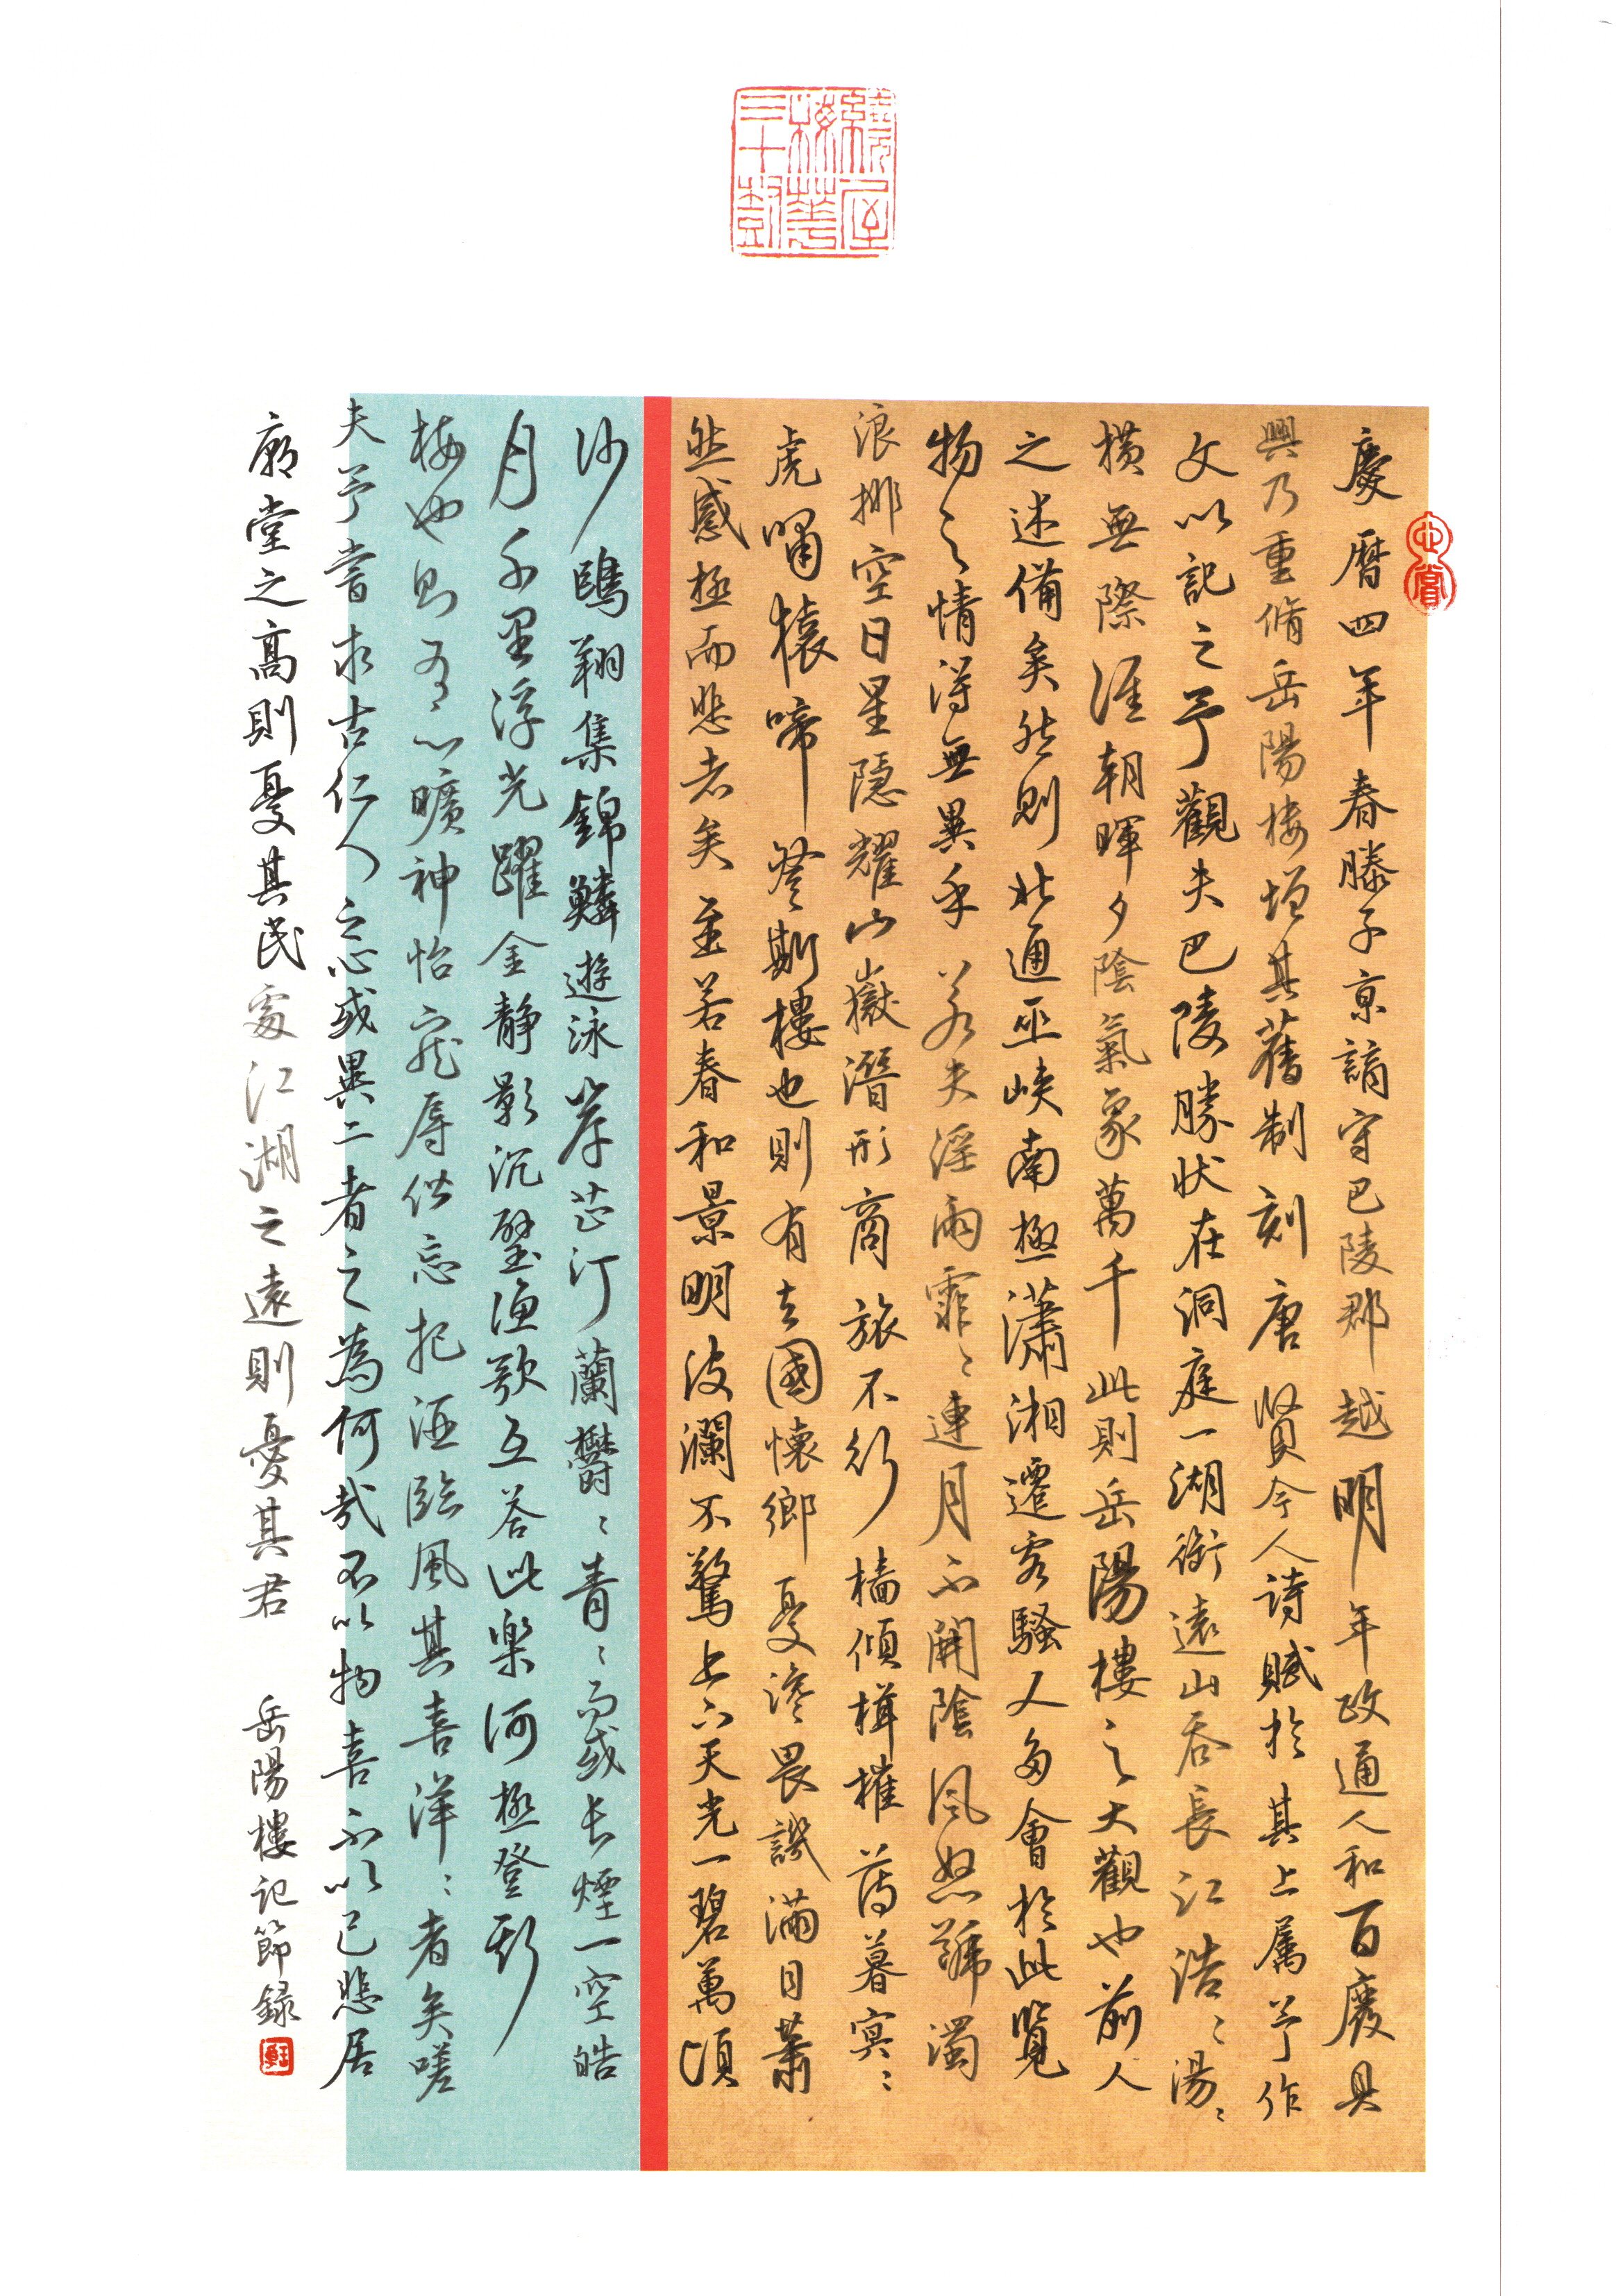 繞屋梅華三十樹
心賞
慶曆四年春滕子京謫守巴陵郡越明年政通人和百廢具
興乃重脩岳陽樓增其舊制刻唐賢今人詩賦於其上属予作
文以記之予觀夫巴陵勝狀在洞庭一湖銜遠山吞長江浩〻湯〻
橫無際涯朝暉夕陰氣象萬千此則岳陽樓之大觀也前人
之述備矣然則北通巫峽南極瀟湘遷客騷人多會於此覽
物之情得無異乎若夫淫雨霏〻連月不開陰風怒號濁
浪排空日星隱耀山嶽潛形商旅不行檣傾楫摧薄暮冥〻
虎嘯猿啼登斯樓也則有去國懷鄉憂讒畏譏滿目蕭
然感極而悲者矣至若春和景明波瀾不驚上下天光一碧萬頃
沙鷗翔集錦鱗遊泳岸芷汀蘭鬱〻青〻而或長煙一空皓
月千里浮光躍金靜影沉璧漁歌互答此樂何極登斯
樓也則有心曠神怡寵辱偕忘把酒臨風其喜洋〻者矣嗟
夫予嘗求古仁人之心或異二者之為何哉不以物喜不以己悲居
廟堂之高則憂其民處江湖之遠則憂其君 岳陽樓記節録